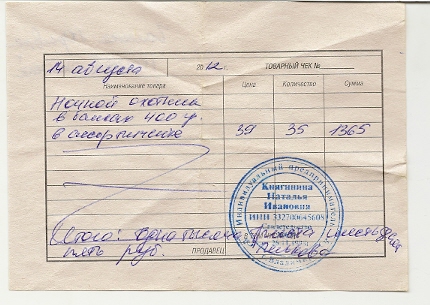 14 августа 2012 г. ТОВАРНЫЙ ЧЕК №
Наименование товара Цена Количество Сумма
Ночной охотник
в банках 400 гр.
в ассортименте 39 35 1365
Индивидуальный предприниматель
Княгинина
Наталья
Ивановна
ИНН
Итого: Одна тысяча триста шестьдесят
пять руб.
ПРОДАВЕЦ